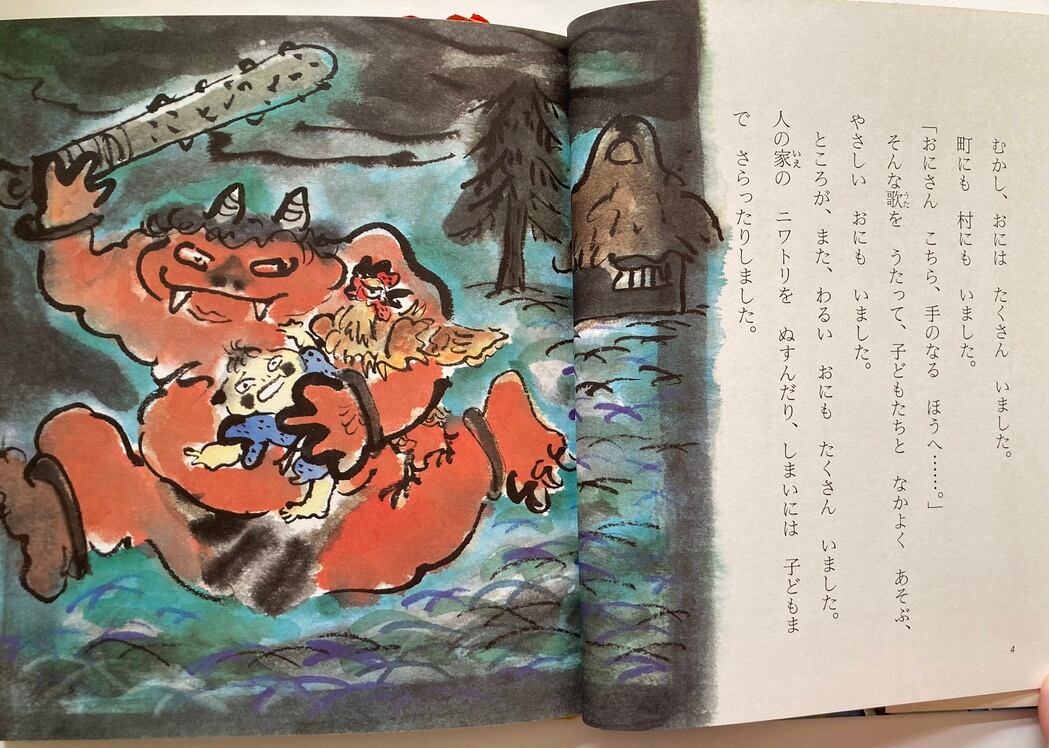 むかし、おには たくさん いました。
町にも 村にも いました。
「おにさん こちら、手のなる ほうへ……。」
そんな歌を うたって、子どもたちと なかよく あそぶ、
やさしい おにも いました。
ところが、また、わるい おにも たくさん いました。
人の家の ニワトリを ぬすんだり、しまいには 子どもま
で さらったりしました。
うた
いえ
4
5